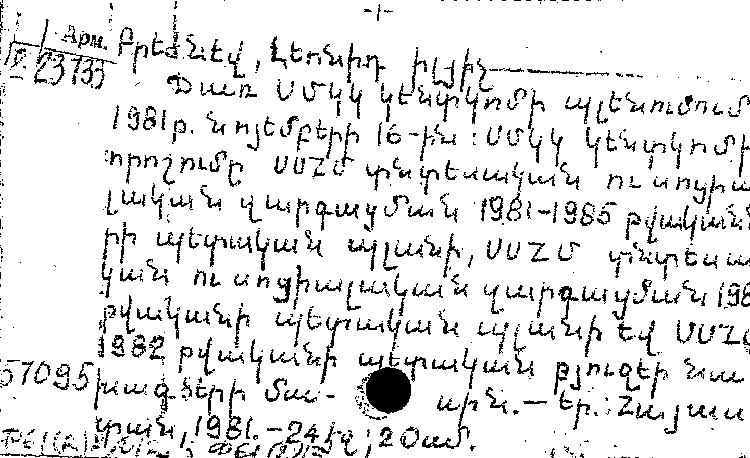 Арм. Բրեժնեվ, Լեոնիդ Իլյիչ
23133
Ճառ ՍՄԿԿ Կենտկոմի պլենումում
1981թ. նոյեմբերի 16-ին: ՍՄԿԿ Կենտկոմի
որոշումը ՍՍՀՄ տնտեսական ու սոցիա
լական զարգացման 1981-1985 թվականն
րի պետական պլանի, ՍՍՀՄ տնտեսա
կան ու սոցիալական զարգացման 198
թվականի պետական պլանի եվ ՍՍՀՄ
1982 թվականի պետական բյուջեի նա
57095 խագծերի մա- սին. — եր.: Հայաս
տան, 1981. - 24 էջ; 20սմ.